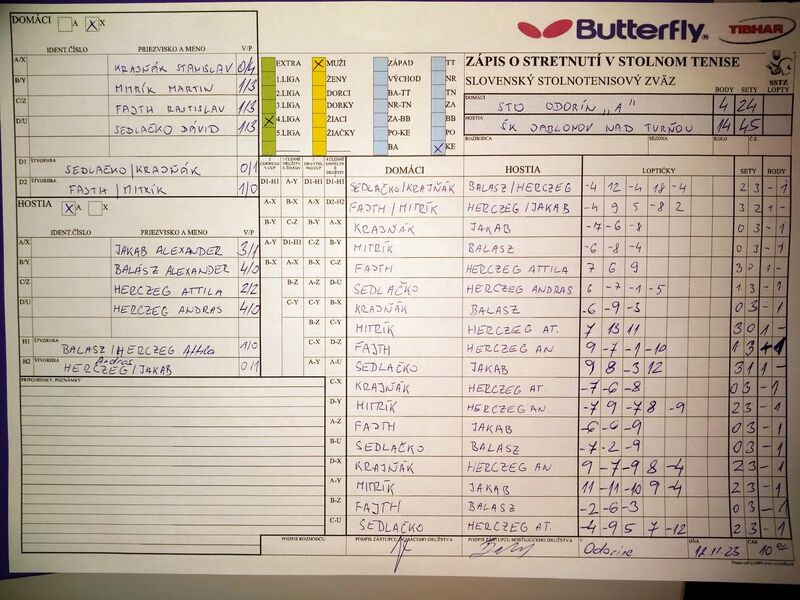 DOMÁCI A X X
Butterfly
TIBHAR
IDENT.ČÍSLO PRIEZVISKO A MENO V/P
A/X KRAJŇÁK STANISLAV 0/4
B/Y MITRÍK MARTIN 1/3
C/Z FAJTH RASTISLAV 1/3
D/U SEDLAČKO DÁVID 1/3
D1 ŠTVORHRA SEDLAČKO/KRAJŇÁK 0/1
D2 ŠTVORHRA FAJTH/MITRÍK 1/0
EXTRA X MUŽI ZÁPAD TT
1.LIGA ŽENY VÝCHOD NR
2.LIGA DORCI BA-TT TN
3.LIGA DORKY NR-TN ZA
X 4.LIGA ŽIACI ZA-BB BB
5.LIGA ŽIAČKY PO-KE PO
BA X KE
ZÁPIS O STRETNUTÍ V STOLNOM TENISE
SLOVENSKÝ STOLNOTENISOVÝ ZVÄZ
SSTZ
BODY SETY LOPTY
DOMÁCI STO ODORÍN "A" 4 24
HOSTIA ŠK JABLONOV NAD TURŇOU 14 45
ROZHODCA SEZÓNA KOLO Č.Z.
HOSTIA X A X
IDENT.ČÍSLO PRIEZVISKO A MENO V/P
A/X JAKAB ALEXANDER 3/1
B/Y BALÁSZ ALEXANDER 4/0
C/Z HERCZEG ATTILA 2/2
D/U HERCZEG ANDRAS 4/0
H1 ŠTVORHRA BALASZ/HERCZEG Attila 1/0
H2 ŠTVORHRA HERCZEG Andras/JAKAB 0/1
PRIPOMIENKY, POZNÁMKY
DOMÁCI HOSTIA LOPTIČKY SETY BODY
D1-H1 A-Y D1-H1 D1-H1 SEDLAČKO/KRAJŇÁK BALASZ/HERCZEG -4 12 -4 18 -4 2 3 - 1
A-X B-X A-X D2-H2 FAJTH/MITRÍK HERCZEG/JAKAB -4 9 5 -8 2 3 2 1 -
B-Y C-Z B-Y A-X KRAJŇÁK JAKAB -7 -6 -8 0 3 - 1
A-Y D1-H1 C-Z B-Y MITRÍK BALASZ -6 -8 -4 0 3 - 1
B-X A-X B-X C-Z FAJTH HERCZEG ATTILA 7 6 9 3 0 1 -
B-Z A-Z D-U SEDLAČKO HERCZEG ANDRAS 6 -7 -1 -5 1 3 - 1
C-Y C-Y B-X KRAJŇÁK BALASZ -6 -9 -3 0 3 - 1
B-Z C-Y MITRÍK HERCZEG AT. 7 13 11 3 0 1 -
C-X D-Z FAJTH HERCZEG AN 9 -7 -1 -10 1 3 - 1
A-Y A-U SEDLAČKO JAKAB 9 8 -3 12 3 1 1 -
C-X KRAJŇÁK HERCZEG AT. -7 -6 -8 0 3 - 1
D-Y MITRÍK HERCZEG AN. -7 9 -7 8 -9 2 3 - 1
A-Z FAJTH JAKAB -6 -6 -9 0 3 - 1
B-U SEDLAČKO BALASZ -7 -2 -9 0 3 - 1
D-X KRAJŇÁK HERCZEG AN 9 -7 -9 8 -4 2 3 - 1
A-Y MITRÍK JAKAB 11 -11 -10 9 -4 2 3 - 1
B-Z FAJTH BALASZ -2 -6 -3 0 3 - 1
C-U SEDLAČKO HERCZEG AT. -4 -9 5 7 -12 2 3 - 1
PODPIS ROZHODCU PODPIS ZÁSTUPCU DOMÁCEHO DRUŽSTVA PODPIS ZÁSTUPCU HOSŤUJÚCEHO DRUŽSTVA V Odoríne DŇA 12.11.23 ČAS 10